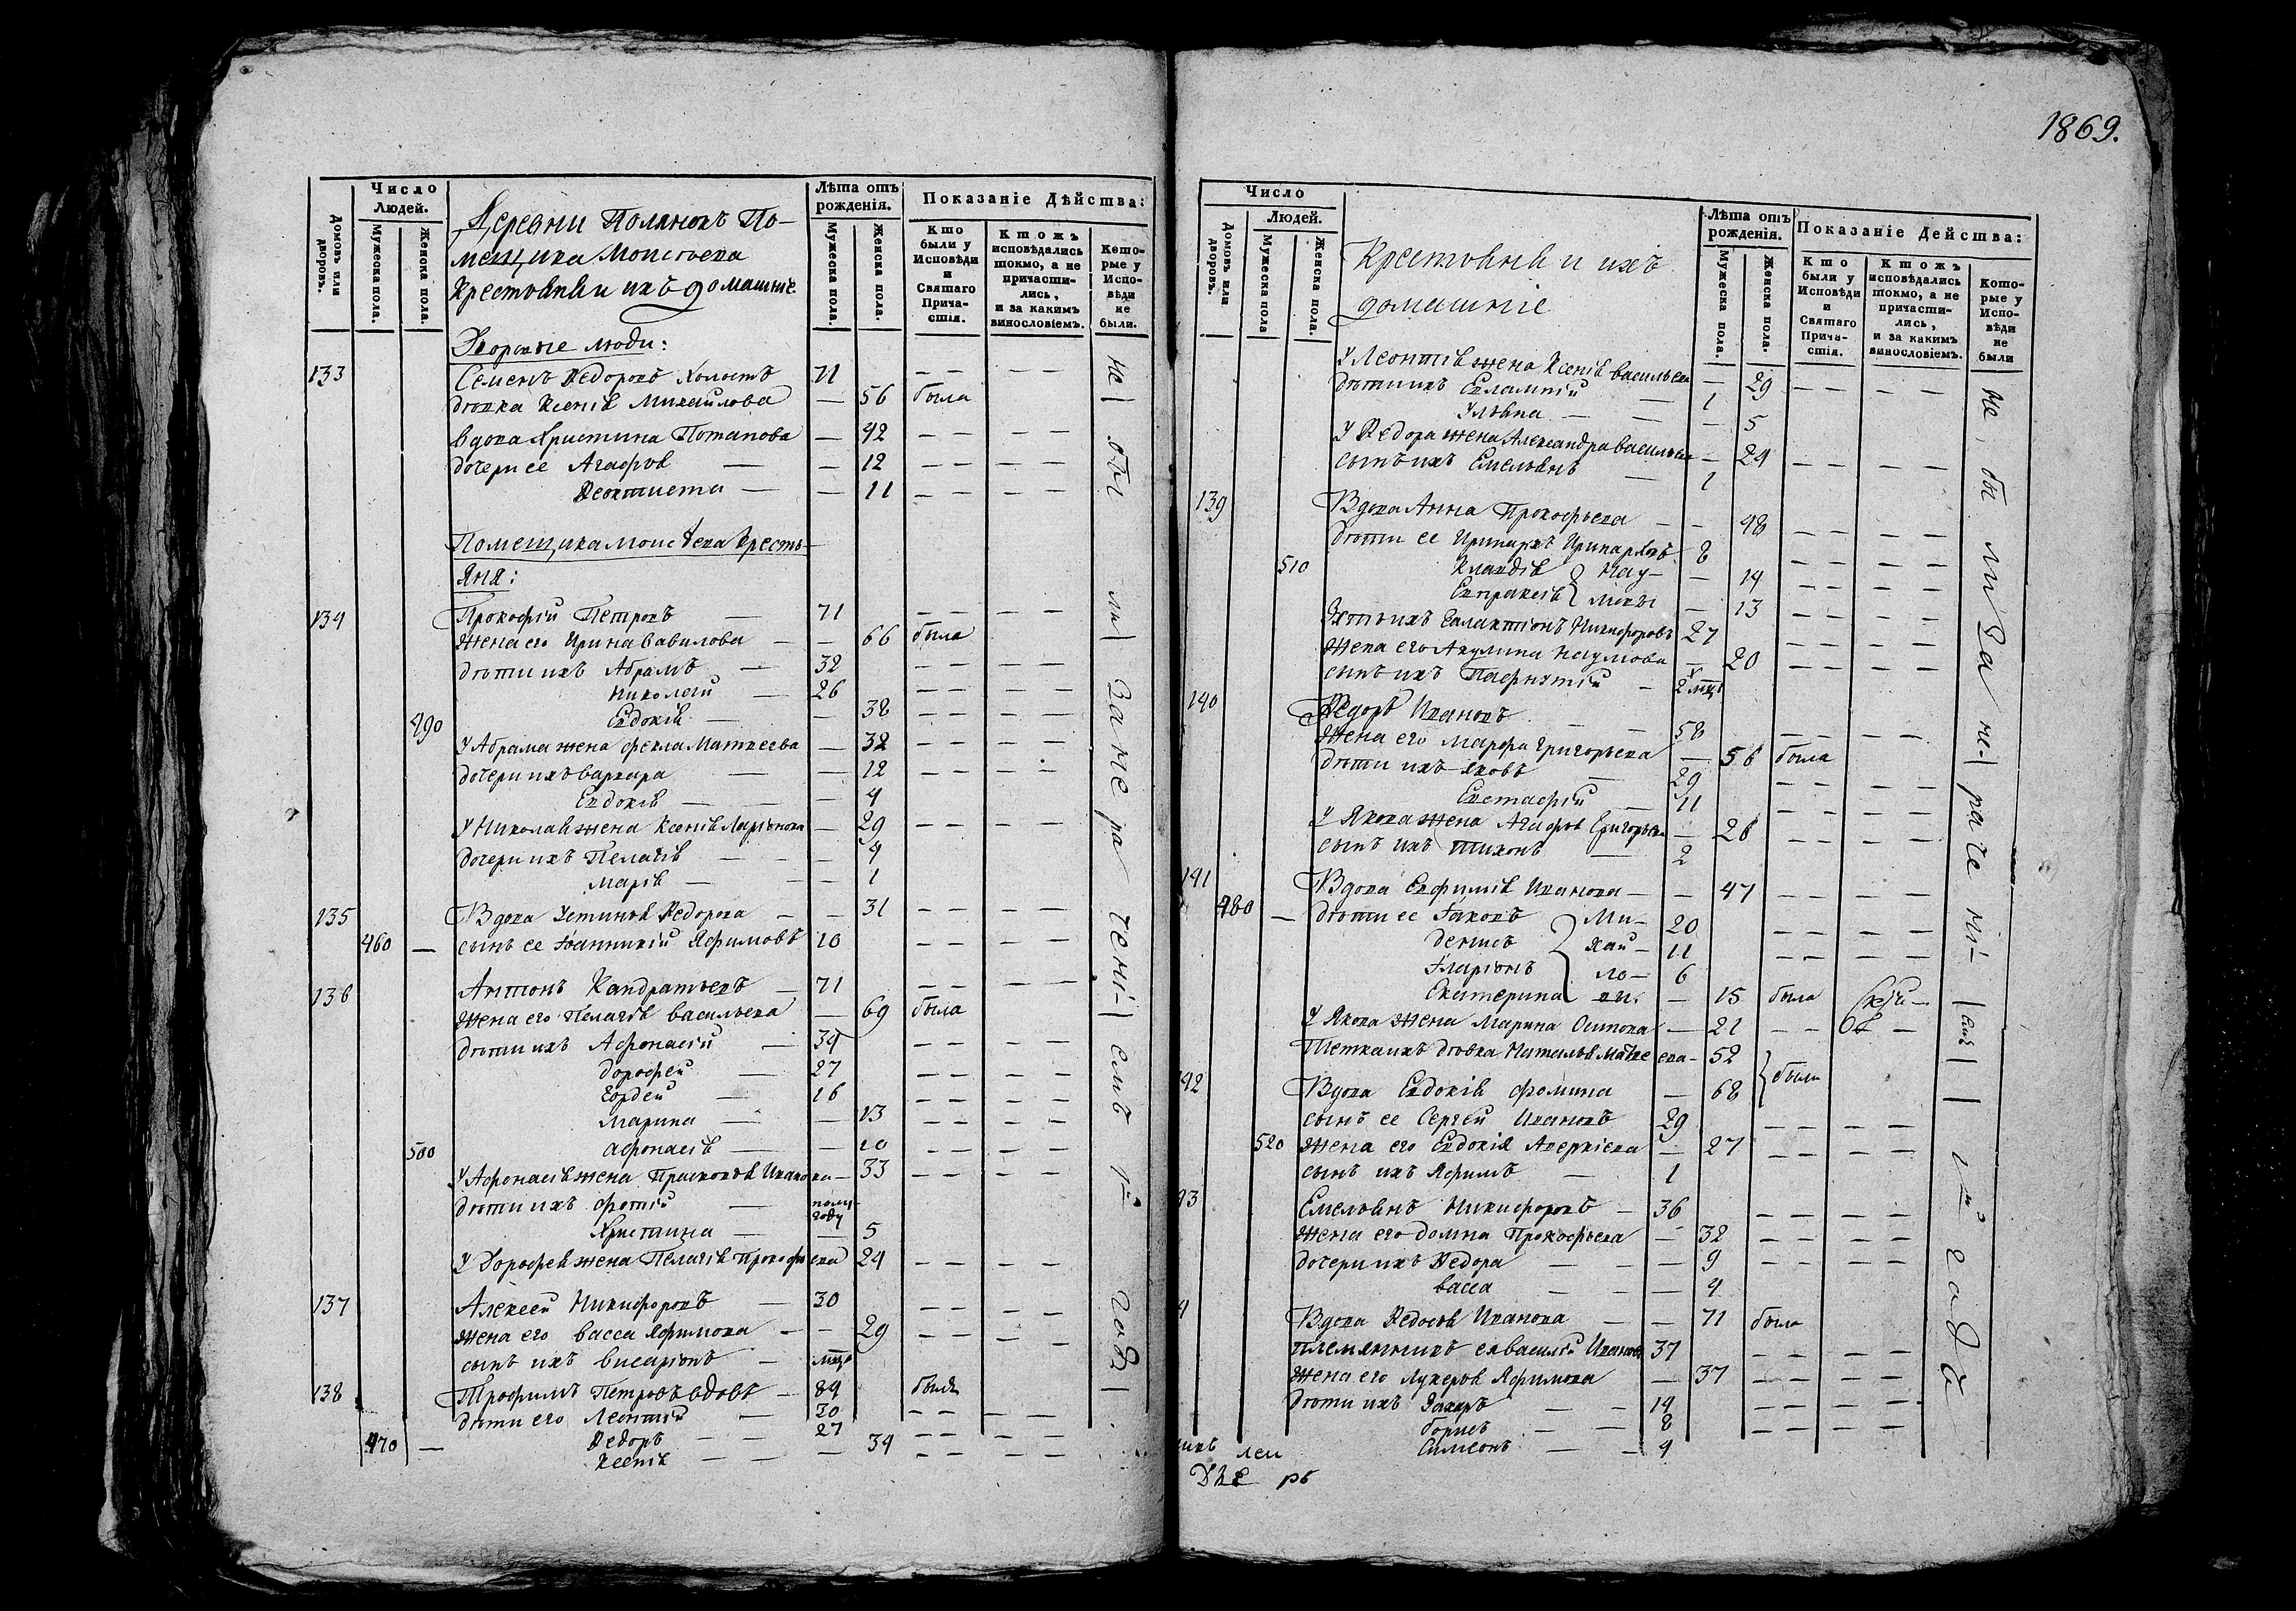 1869.
Число
Людей.
Домовъ или дворовъ.
Мужеска пола.
Женска пола.
Деревни Полянокъ По-
мещика
крестьяня и ихъ домашніе
Лѣта отъ
рожденія.
Мужеска пола.
Женска пола.
Показаніе Дѣйства:
Кто были у Исповѣди и Святаго Причастія.
Ктожъ исповѣдались токмо, а не причастились, и за какимъ винословіемъ.
Которые у Исповѣди не были.
Дворовые люди:
133 Семенъ Ѳедоровъ холостъ 71 — — — —
дѣвка Ксенія Михайлова — 56 была
вдова Христина Потапова — 42 — — — —
дочери ее Агафія — — 12 — — — —
Ѳеоктиста — — 11 — — — —
Помещика кресть-
яня:
134 Прокофій Петровъ — 71 — — — —
жена его Ирина Вавилова — — 66 была
дѣти ихъ Абрамъ — 32 — — — —
Николай — 26 — — — —
490 Евдокія — — 38 — — — —
У Абрама жена Фекла Матвеева — 32 — — — —
дочери ихъ Варвара — — 12 — — — —
Евдокія — — — 4
У Николая жена Ксенія Ларіонова — 29 — — — —
дочери ихъ Пелагія — — — 4
Марія — — — 1
135 Вдова Устинья Ѳедорова — — 31 — — — —
460 — сынъ ее Іоанникій Яфимовъ 10 — — — —
136 Антонъ Кандратьевъ — 71 — — — —
жена его Пелагія Васильева — 69 была
дѣти ихъ Афонасій — 34 — — — —
Дорофей — 27 — — — —
Гордей — 16 — — — —
Марина — — 13 — — — —
500 Афонасія — — 10 — — — —
У Афонасія жена Прасковья Иванова — 33 — — — —
дѣти ихъ Фотій — полугоду
Христина — — 5
У Дорофея жена Пелагія Прокофьева 24 — — — —
137 Алексей Никифоровъ — 30 — — — —
жена его Васса Яфимова — — 29 — — — —
сынъ ихъ Висаріонъ —
138 Трофимъ Петровъ вдовъ — 84 былъ
дѣти его Леонтій — 30 — — — —
Ѳедоръ — — 27 — — — —
470 — Ксенія — — — 34 — — — —
не бы ли За не ра чені емъ 1й годъ
Число
Людей.
Домовъ или дворовъ.
Мужеска пола
Женска пола.
Крестьяня и ихъ
домашніе
Лѣта отъ
рожденія.
Мужеска пола.
Женска пола.
Показаніе Действа:
Кто были у Исповѣди и Святаго Причастія.
Ктожъ исповѣдались токмо, а не причастились, и за какимъ винословіемъ.
Которые у Исповѣди не были
У Леонтія жена Ксенія Васильева — 29 — — — —
дѣти ихъ Евлампій — 1
Ульяна — — — 5
У Ѳедора жена Александра Васильева — 24 — — — —
сынъ ихъ Емельянъ — 1
139 Вдова Анна Прокофьева — — 48 — — — —
дѣти ее Иринархъ Иринарховъ 8 — — — —
510 Клавдія Нау- — 14 — — — —
Евпраксія мовы — 13 — — — —
Зять ихъ Галактіонъ Никифоровъ 27 — — — —
жена его Акулина Наумова — 20 — — — —
сынъ ихъ Пафнутій —
140 Ѳедоръ Ивановъ — — 58 — — — —
жена его Марфа Григорьева — 56 была
дѣти ихъ Яковъ — 29 — — — —
Евстафій — 11 — — — —
У Якова жена Агафья Григорьева — 26 — — — —
сынъ ихъ Тихонъ — 2
141 Вдова Евфимія Иванова — — 47 — — — —
480 — дѣти ее Іаковъ Ми- 20 — — — —
Денисъ хай- 11 — — — —
Іларіонъ ло- 6
Екатерина вы. — 15 была
У Якова жена Марина Осипова — 21 — —
Тетка ихъ дѣвка Наталья Матвеева — 52 были
42 Вдова Евдокія Фомина — 68
сынъ ее Сергей Ивановъ 29 — — — —
520 жена его Евдокія Аверкіева — 27 — — — —
сынъ ихъ Яфимъ — 1
43 Емельянъ Никифоровъ — 36 — — — —
жена его Домна Прокофьева — 32 — — — —
дочери ихъ Ѳедора — — — 9 — — — —
Васса — — — 4
4 Вдова Ѳедосья Иванова — — 71 была
племянникъ ея Василій Ивановъ 37 — — — —
жена его Лукерья Яфимова — 37 — — — —
дѣти ихъ Захаръ — — 14 — — — —
Борисъ — — 8 — — — —
Симеонъ — — 4
не бы ли За не раче ні емъ 1й года